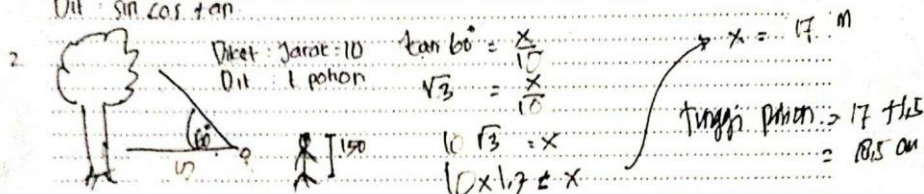 Dit : sin cos tan
2
Diket : Jarak : 10
Dit : t pohon
60°
150
tan 60° = x/10
√3 = x/10
10 √3 = x
10 x 1,7 = x
x = 17 m
tinggi pohon = 17 + 1,5
= 18,5 cm